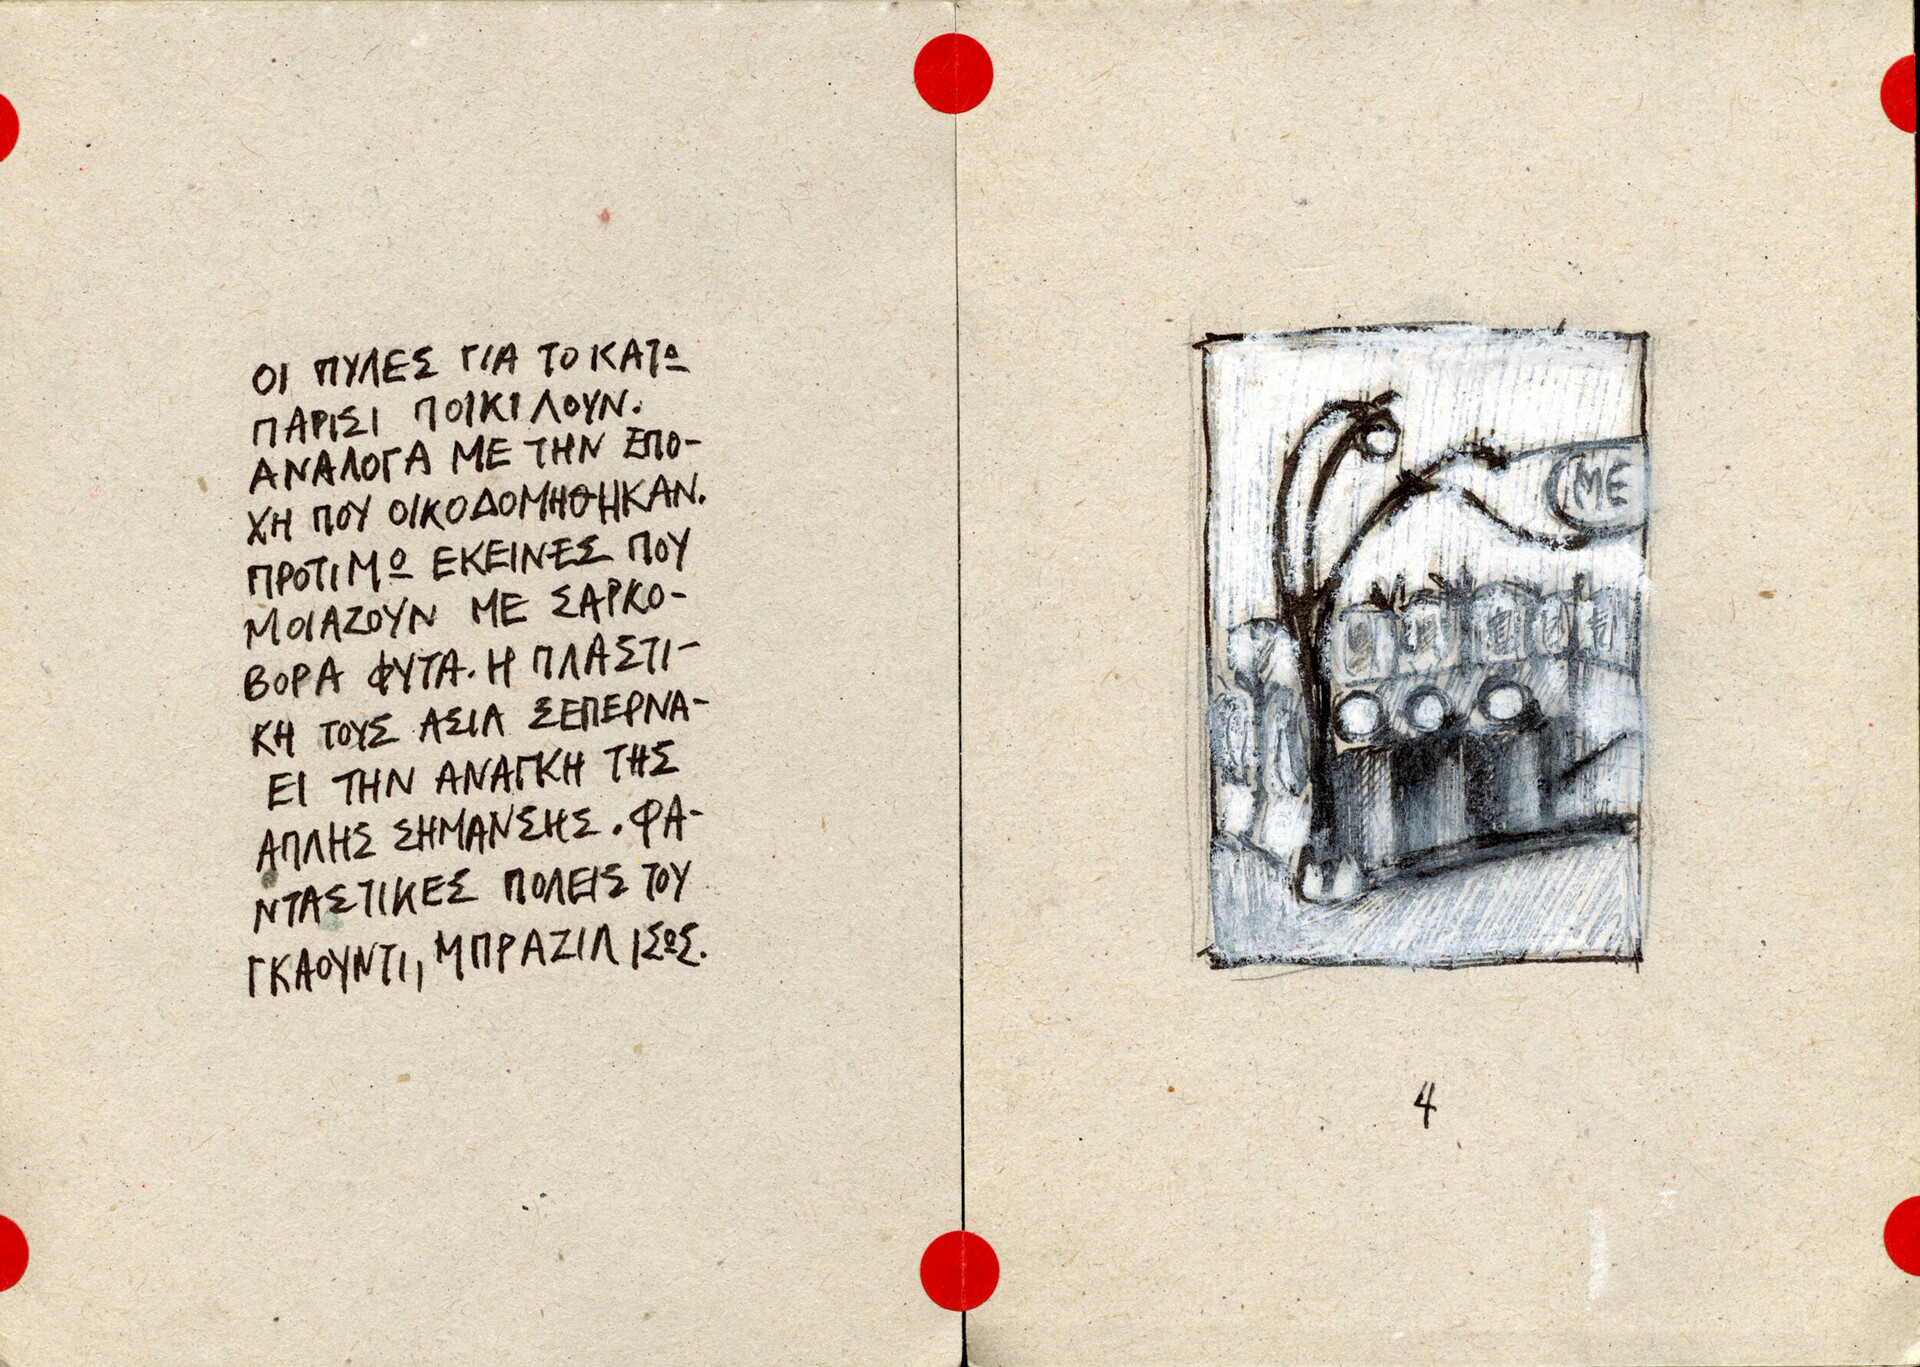 ΟΙ ΠΥΛΕΣ ΓΙΑ ΤΟ ΚΑΤΩ
ΠΑΡΙΣΙ ΠΟΙΚΙΛΟΥΝ.
ΑΝΑΛΟΓΑ ΜΕ ΤΗΝ ΕΠΟ-
ΧΗ ΠΟΥ ΟΙΚΟΔΟΜΗΘΗΚΑΝ.
ΠΡΟΤΙΜΩ ΕΚΕΙΝΕΣ ΠΟΥ
ΜΟΙΑΖΟΥΝ ΜΕ ΣΑΡΚΟ-
ΒΟΡΑ ΦΥΤΑ. Η ΠΛΑΣΤΙ-
ΚΗ ΤΟΥΣ ΑΞΙΑ ΞΕΠΕΡΝΑ-
ΕΙ ΤΗΝ ΑΝΑΓΚΗ ΤΗΣ
ΑΠΛΗΣ ΣΗΜΑΝΣΗΣ. ΦΑ-
ΝΤΑΣΤΙΚΕΣ ΠΟΛΕΙΣ ΤΟΥ
ΓΚΑΟΥΝΤΙ, ΜΠΡΑΖΙΛ ΙΣΩΣ.
ΜΕ
4